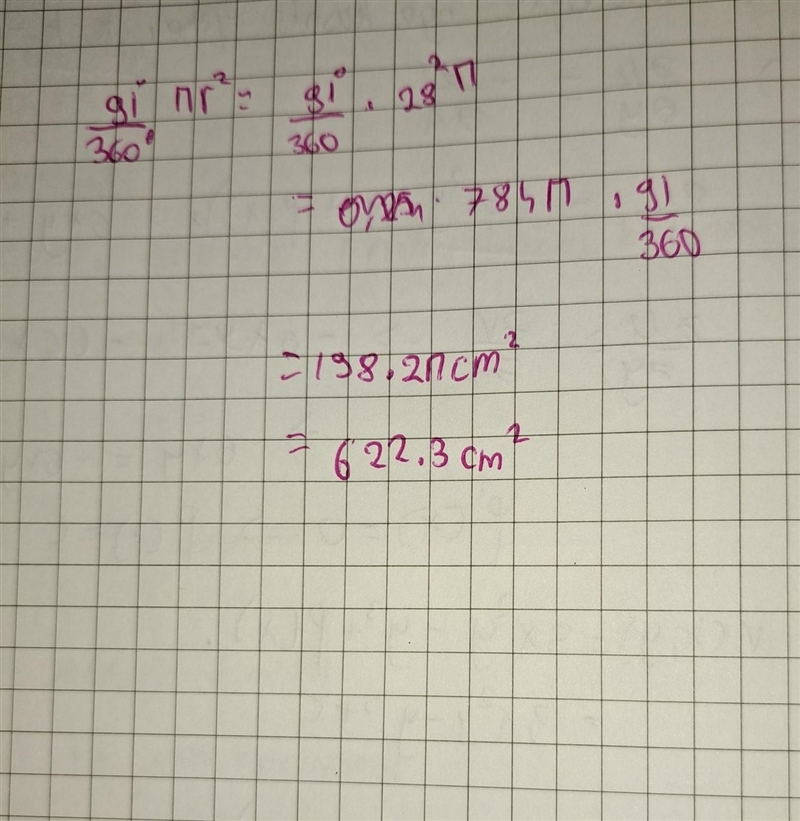 91°/360° πr² = 91°/360 · 28²π
= 784π · 91/360
= 198.2π cm²
= 622.3 cm²